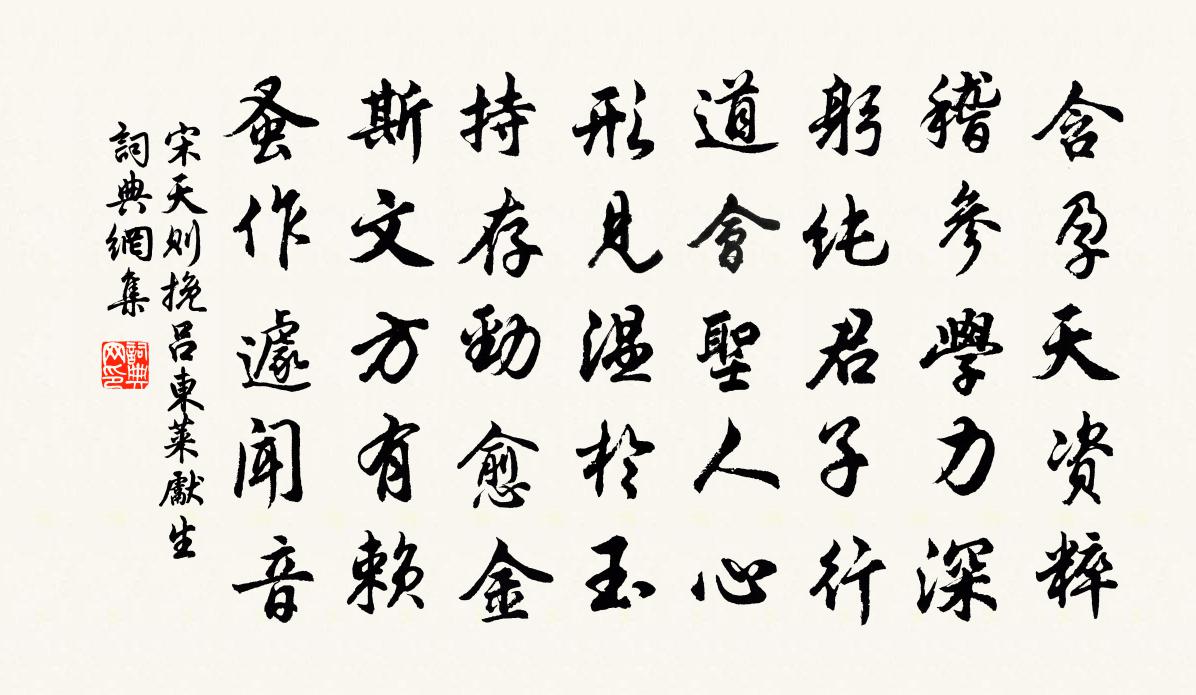 含孕天資粹
稽參學力深
躬純君子行
道會聖人心
形見温於玉
持存勁愈金
斯文方有賴
蚤作遽聞音
宋天则挽吕東萊獻生
詞典網集
詞典网印